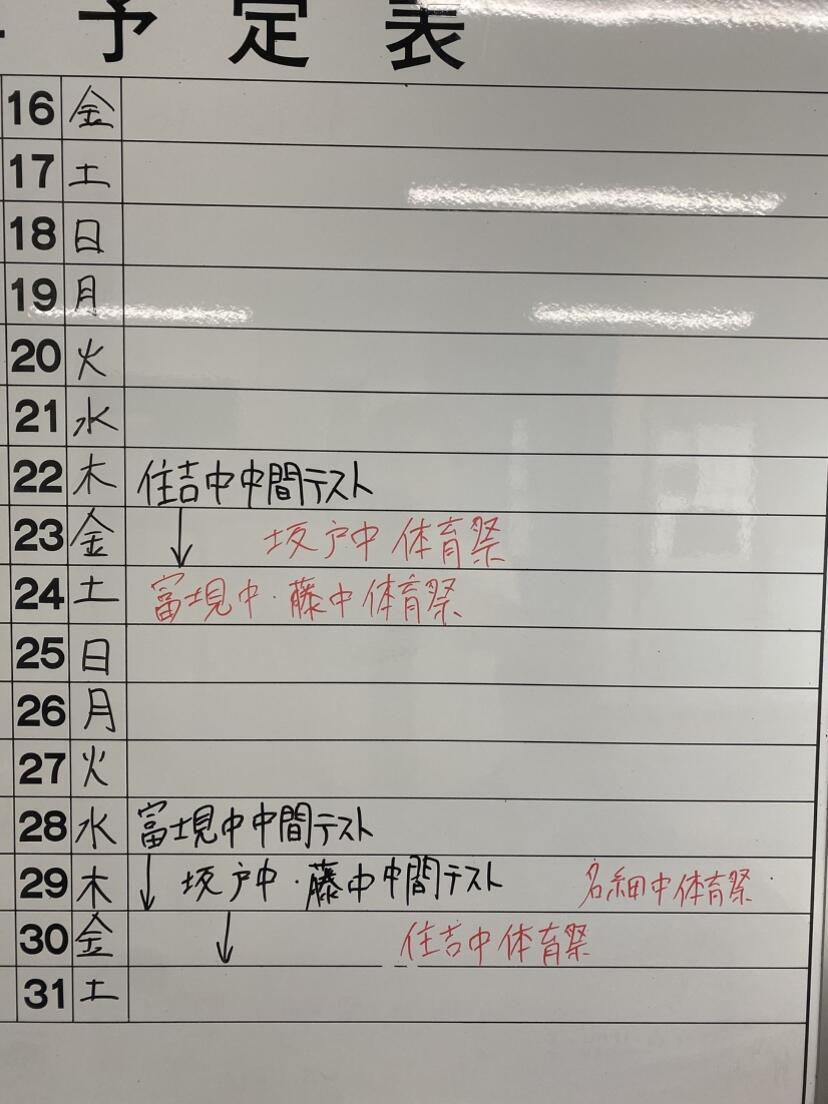 予定表
16 金
17 土
18 日
19 月
20 火
21 水
22 木 住吉中中間テスト
23 金 ↓ 坂戸中 体育祭
24 土 富士見中・藤中体育祭
25 日
26 月
27 火
28 水 富士見中中間テスト
29 木 ↓ 坂戸中・藤中中間テスト 名細中体育祭
30 金 ↓ 住吉中体育祭
31 土